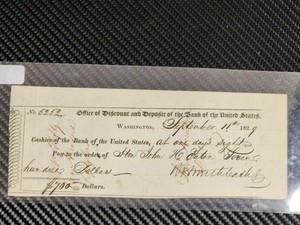 No. 5252 Office of Discount and Deposit of the Bank of the United States,
Washington, September 11th 1829
Cashier of the Bank of the United States, at one day's sight
Pay to the order of Hon John H Eaton Seven
hundred Dollars
$700 Dollars.